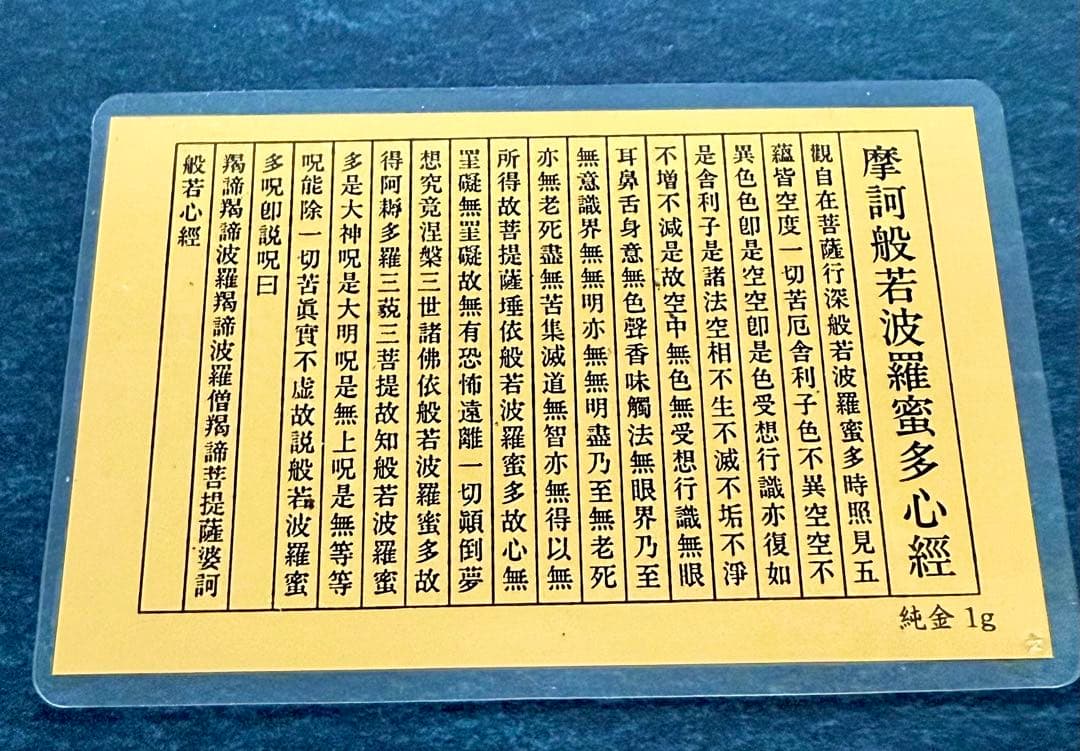 摩訶般若波羅蜜多心經
觀自在菩薩行深般若波羅蜜多時照見五
蘊皆空度一切苦厄舍利子色不異空空不
異色色卽是空空卽是色受想行識亦復如
是舍利子是諸法空相不生不滅不垢不淨
不增不減是故空中無色無受想行識無眼
耳鼻舌身意無色聲香味觸法無眼界乃至
無意識界無無明亦無無明盡乃至無老死
亦無老死盡無苦集滅道無智亦無得以無
所得故菩提薩埵依般若波羅蜜多故心無
罣礙無罣礙故無有恐怖遠離一切顚倒夢
想究竟涅槃三世諸佛依般若波羅蜜多故
得阿耨多羅三藐三菩提故知般若波羅蜜
多是大神呪是大明呪是無上呪是無等等
呪能除一切苦眞實不虛故説般若波羅蜜
多呪卽説呪曰
羯諦羯諦波羅羯諦波羅僧羯諦菩提薩婆訶
般若心經
純金 1g